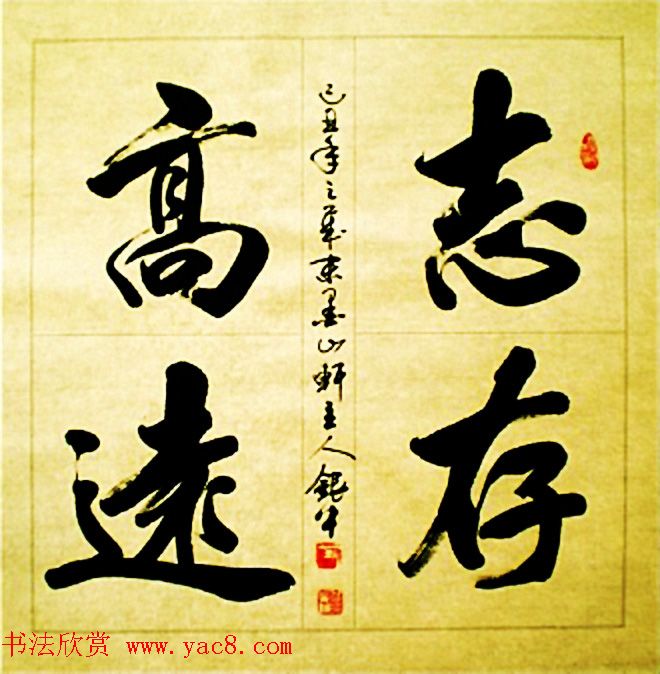 志存
高遠
己丑年之歲末墨山軒主人銀牛
书法欣赏 www.yac8.com